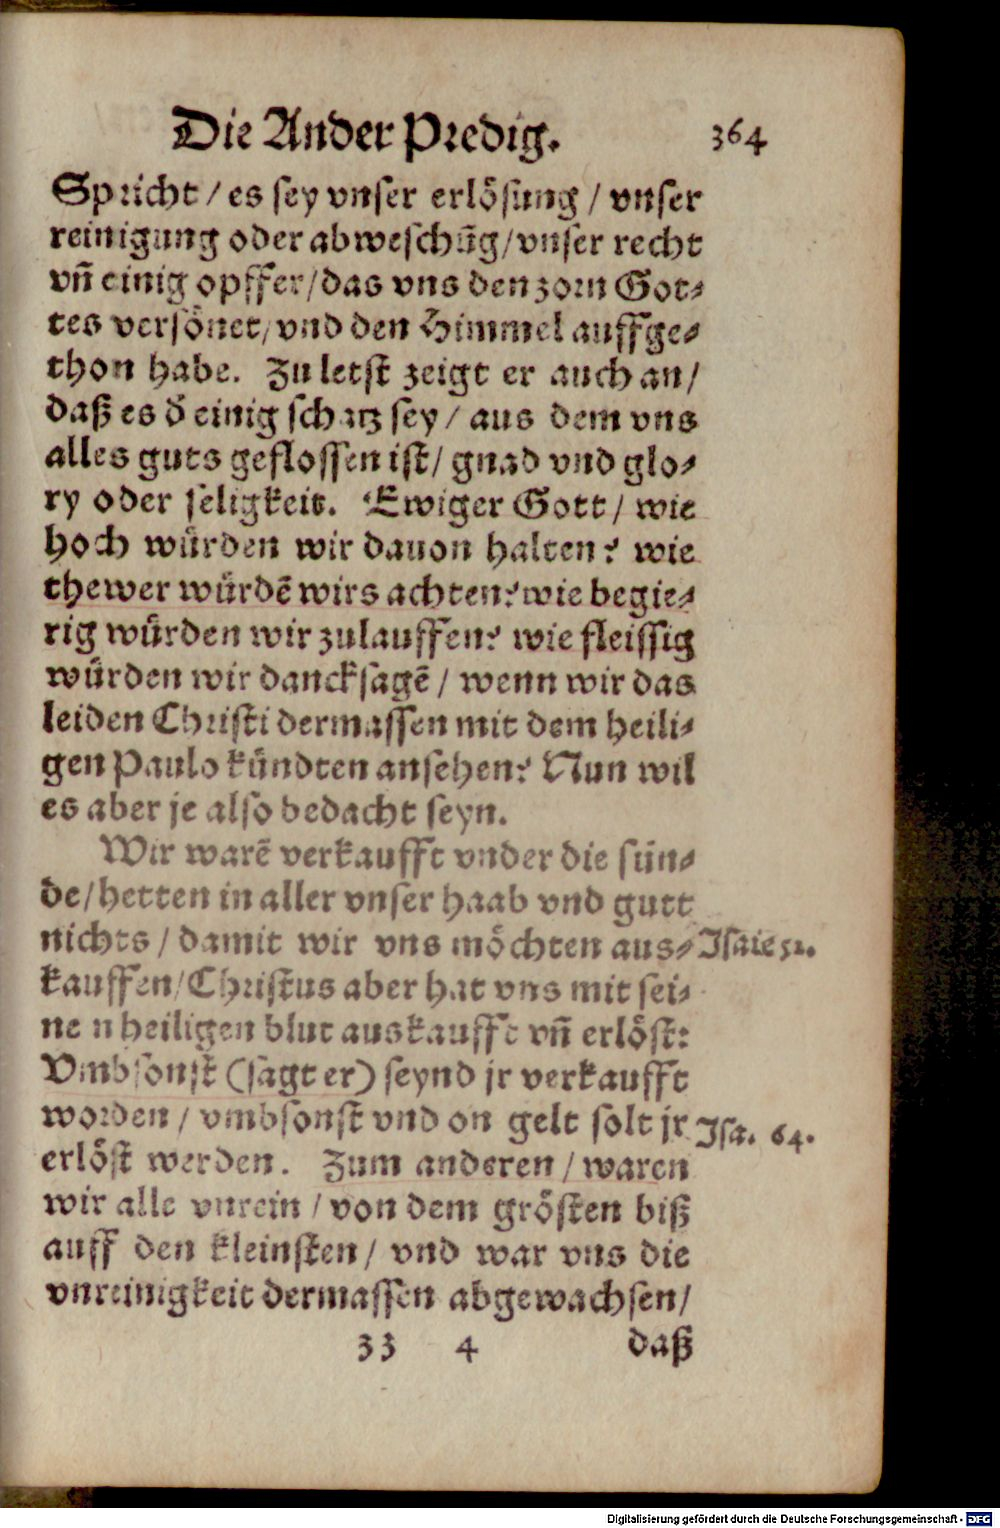 Die Ander Predig. 364
Spricht / es sey vnser erlösung / vnser
reinigung oder abweschũg / vnser recht
vñ einig opffer / das vns den zorn Got⸗
tes versönet / vnd den Himmel auffge⸗
thon habe. Zu letst zeigt er auch an /
daß es d̾ einig schatz sey / aus dem vns
alles guts geflossen ist / gnad vnd glo⸗
ry oder seligkeit. Ewiger Gott / wie
hoch würden wir dauon halten? wie
thewer würdẽ wirs achten? wie begie⸗
rig würden wir zulauffen? wie fleissig
würden wir dancksagẽ / wenn wir das
leiden Christi dermassen mit dem heili⸗
gen Paulo kündten ansehen? Nun wil
es aber je also bedacht seyn.
Wir warẽ verkaufft vnder die sün⸗
de / hetten in aller vnser haab vnd gutt
nichts / damit wir vns möchten aus⸗ Isaie 52.
kauffen / Christus aber hat vns mit sei⸗
nen heiligen blut auskaufft vñ erlöst:
Vmbsonst (sagt er) seynd jr verkaufft
worden / vmbsonst vnd on gelt solt jr Isa. 64.
erlöst werden. Zum anderen / waren
wir alle vnrein / von dem grösten biß
auff den kleinsten / vnd war vns die
vnreinigkeit dermassen abgewachsen /
33 4 daß
Digitalisierung gefördert durch die Deutsche Forschungsgemeinschaft - DFG